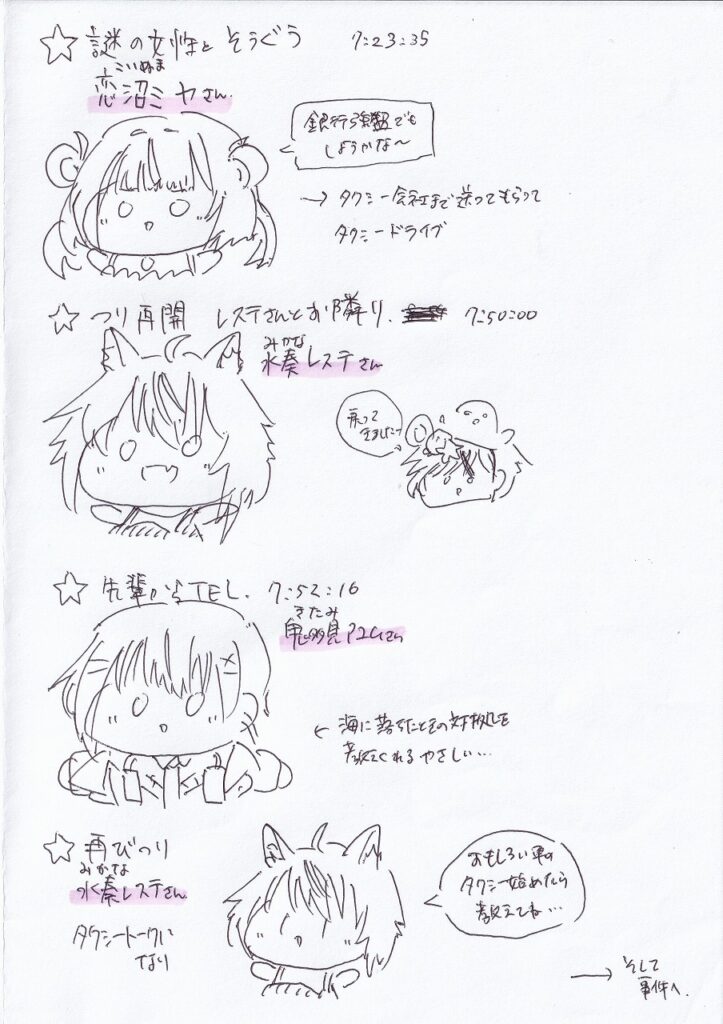 ☆ 謎の女性とそうぐう 7:23:35
こいぬま
恋沼ミヤさん
銀行強盗でも
しようかな〜
→ タクシー会社まで送ってもらって
タクシードライブ
☆ つり再開 レステさんとお隣り. 7:50:00
みかな
水奏レステさん
戻って
きました
☆ 先輩からTEL. 7:52:16
きたみ
鬼多見アユムさん
← 海に落ちたときの対処を
教えてくれるやさしい…
☆ 再びつり
みかな
水奏レステさん
タクシートークに
なり
おもしろい車の
タクシー始めたら
教えてね…
→ そして
事件へ.